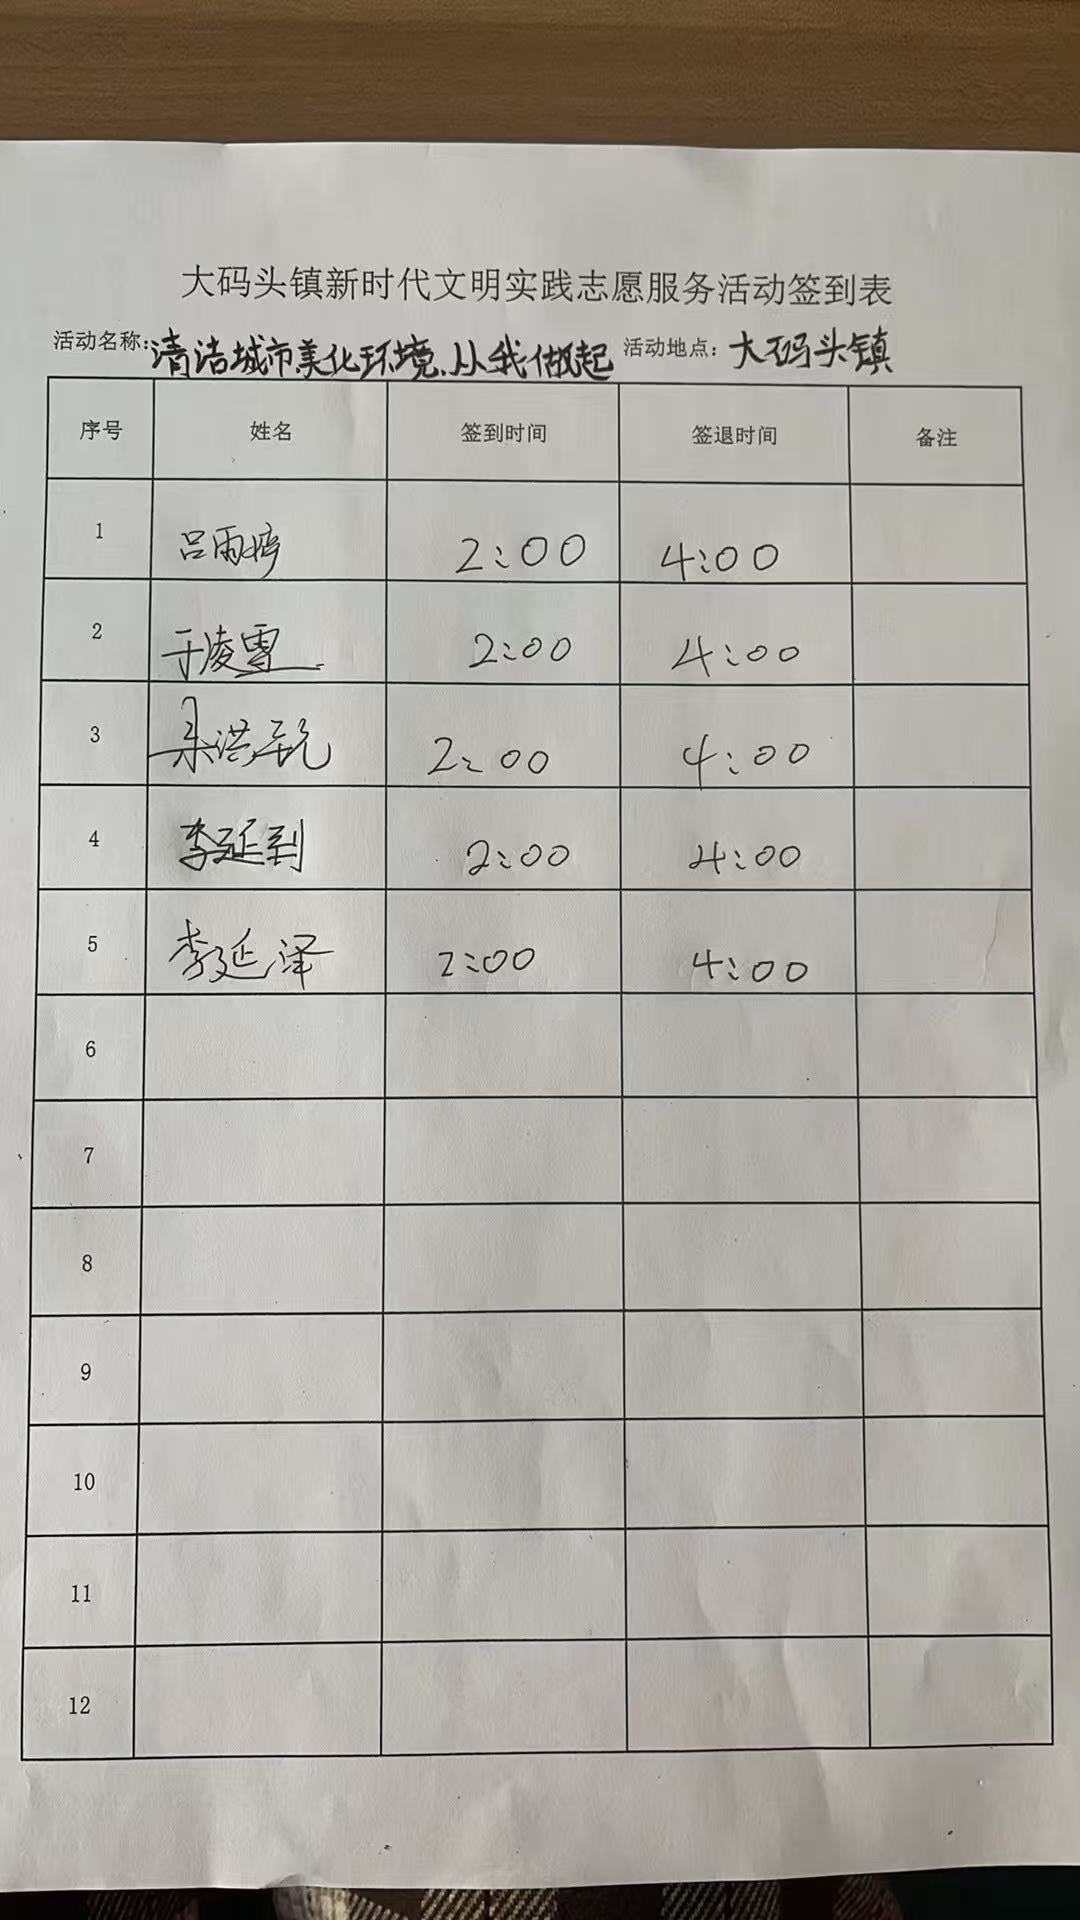 大码头镇新时代文明实践志愿服务活动签到表
活动名称:清洁城市美化环境.从我做起 活动地点:大码头镇
序号 姓名 签到时间 签退时间 备注
1 吕雨婷 2:00 4:00
2 于凌雪 2:00 4:00
3 2:00 4:00
4 李延到 2:00 4:00
5 李延泽 2:00 4:00
6
7
8
9
10
11
12